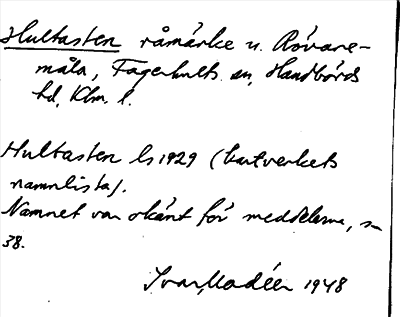 Hultasten råmärke v. Rövare-
måla, Fagerhults sn, Handbörds
hd, Klm. l.
Hultasten ls 1929 (kartverkets
namnlista).
Namnet var okänt för meddelarna, sn
38.
Ivar Modéer 1948